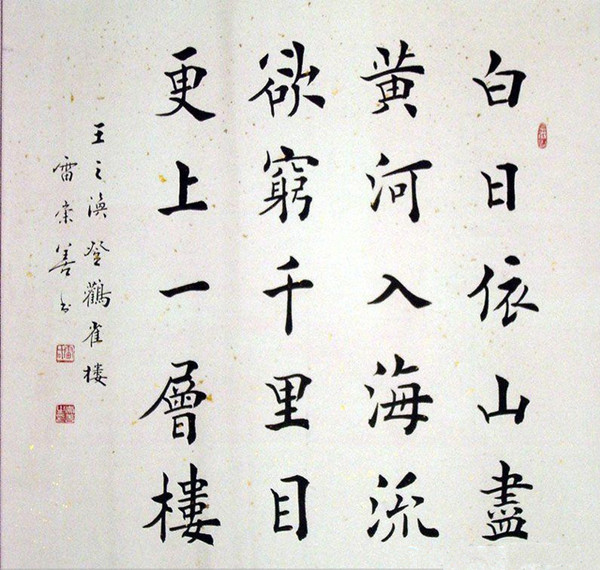 白日依山盡
黃河入海流
欲窮千里目
更上一層樓
王之渙登鸛雀樓
雷崇善书